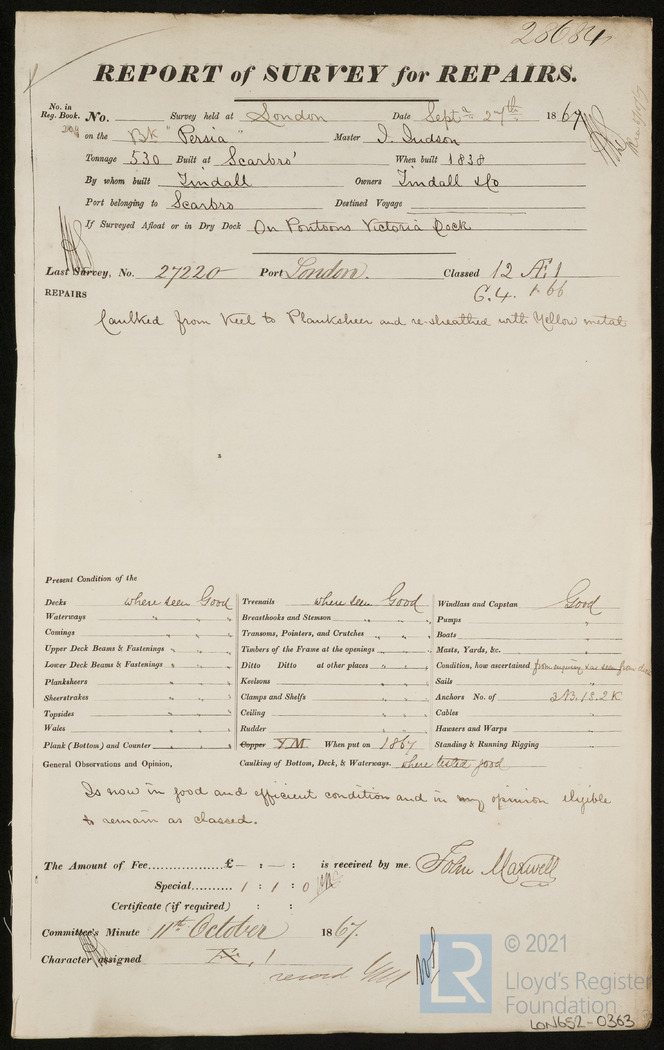 28684
REPORT of SURVEY for REPAIRS.
No. in Reg. Book. No. Survey held at London Date Sept.r 27th 1867
on the Bk "Persia" Master I. Judson
Tonnage 530 Built at Scarbro' When built 1838
By whom built Tindall Owners Tindall & Co
Port belonging to Scarbro Destined Voyage
If Surveyed Afloat or in Dry Dock On Pontoons Victoria Dock
Last Survey, No. 27220 Port London. Classed 12 Æ 1
C.4. 66
REPAIRS
Caulked from Keel to Planksheer and re-sheathed with Yellow metal
Present Condition of the
Decks where seen Good Treenails where seen Good Windlass and Capstan Good
Waterways " " " Breasthooks and Stemson " " " Pumps "
Comings " " " Transoms, Pointers, and Crutches " " " Boats "
Upper Deck Beams & Fastenings " " " Timbers of the Frame at the openings " " " Masts, Yards, &c. "
Lower Deck Beams & Fastenings " " " Ditto Ditto at other places " " " Condition, how ascertained from enquiry & as seen from deck
Planksheers " " " Keelsons " " " Sails "
Sheerstrakes " " " Clamps and Shelfs " " " Anchors No. of 3 B. 1 S. 2 K
Topsides " " " Ceiling " " " Cables "
Wales " " " Rudder " " " Hawsers and Warps "
Plank (Bottom) and Counter " " " Copper YM When put on 1867 Standing & Running Rigging "
General Observations and Opinion, Caulking of Bottom, Deck, & Waterways. where tested good
Is now in good and efficient condition and in my opinion eligible
to remain as classed.
The Amount of Fee.................£ - : - : is received by me. John Maxwell
Special.......... 1 : 1 : 0
Certificate (if required) : :
Committee's Minute 11th October 1867.
Character assigned
record
LR © 2021
Lloyd's Register
Foundation
LON652-0363